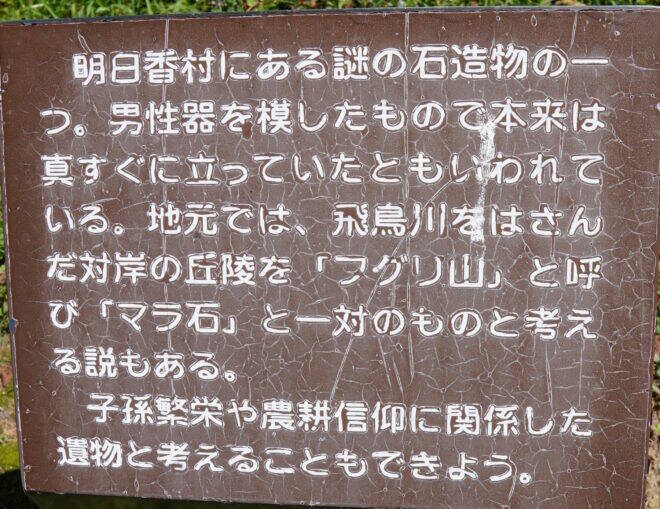 明日香村にある謎の石造物の一
つ。男性器を模したもので本来は
真すぐに立っていたともいわれて
いる。地元では、飛鳥川をはさん
だ対岸の丘陵を「フグリ山」と呼
び「マラ石」と一対のものと考え
る説もある。
子孫繁栄や農耕信仰に関係した
遺物と考えることもできよう。